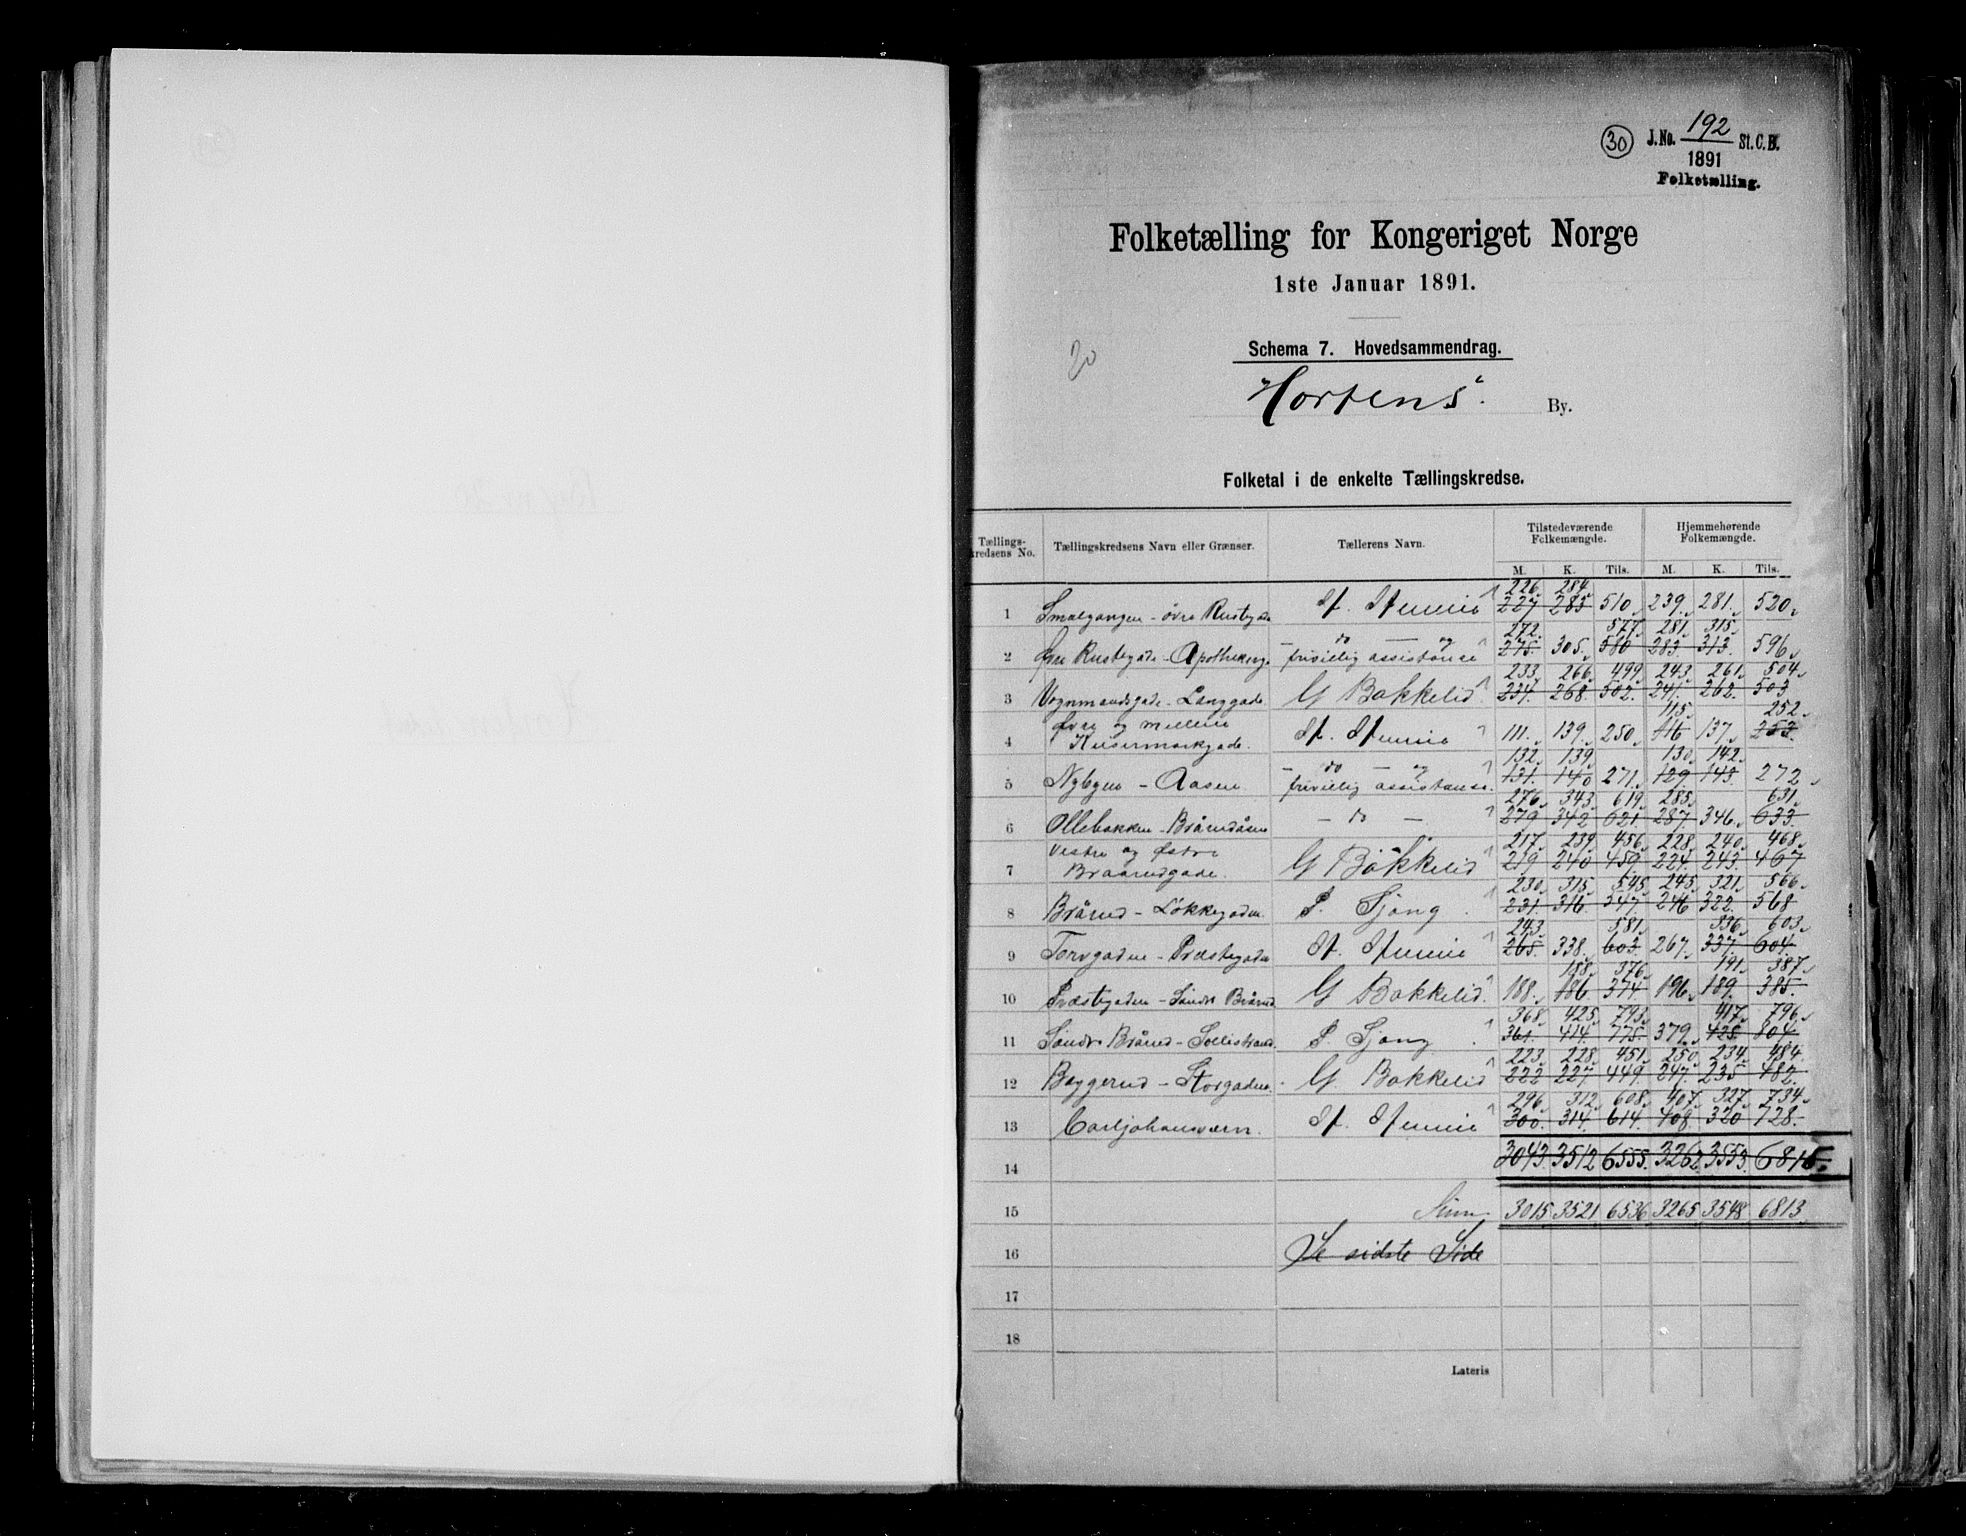 30 J.No. 192 St. C. B.
1891
Folketælling.
Folketælling for Kongeriget Norge
1ste Januar 1891.
20
Schema 7. Hovedsammendrag.
Hortens By.
Folketal i de enkelte Tællingskredse.
Tællingskredsens No. Tællingskredsens Navn eller Grænser. Tællerens Navn. Tilstedeværende Folkemængde. Hjemmehørende Folkemængde.
M. K. Tils. M. K. Tils.
226 284
1 Smalgangen - øvre Rustegade 227 285 510 239 281 520
272 577 281 315
2 Rustegade - Apothekerg. - do - og frivillig assistanse 275 305 580 283 313 596
233 266 499 243 261 504
3 Vognmandsgade - Langgade G Bakkelid 234 268 502 241 262 503
115 252
4 Øvre og mellem Keisermarkgade. 111 139 250 116 137 253
132 139 130 142
5 Nybyen - Aasen - do - og frivillig assistanse 131 140 271 129 143 272
276 343 619 285 631
6 Ollebakken - Bråradåsen - do - 279 342 621 287 346 633
217 239 456 228 240 468
7 Vestre og Østre Braarudgade. G Bakkelid 219 240 459 224 243 467
230 315 545 245 321 566
8 Brårud - Løkkegaden P. Sjong 231 316 547 246 322 568
243 581 336 603
9 Torvgaden - Præstegaden 265 338 603 267 337 604
188 376 191 387
10 Præstegaden - Søndre Brårud G Bakkelid 188 186 374 196 189 385
368 425 793 417 796
11 Søndre Brårud - Sollistrand P. Sjong 361 414 775 379 425 804
223 228 451 250 234 484
12 Baggerud - Storgaden G. Bakkelid 222 227 449 247 235 482
296 312 608 407 327 734
13 Carljohansværn. 300 314 614 408 320 728
14 3043 3512 6555 3262 3553 6815
15 Sum 3015 3521 6536 3265 3548 6813
16 Se sidste Side
17
18
Lateris